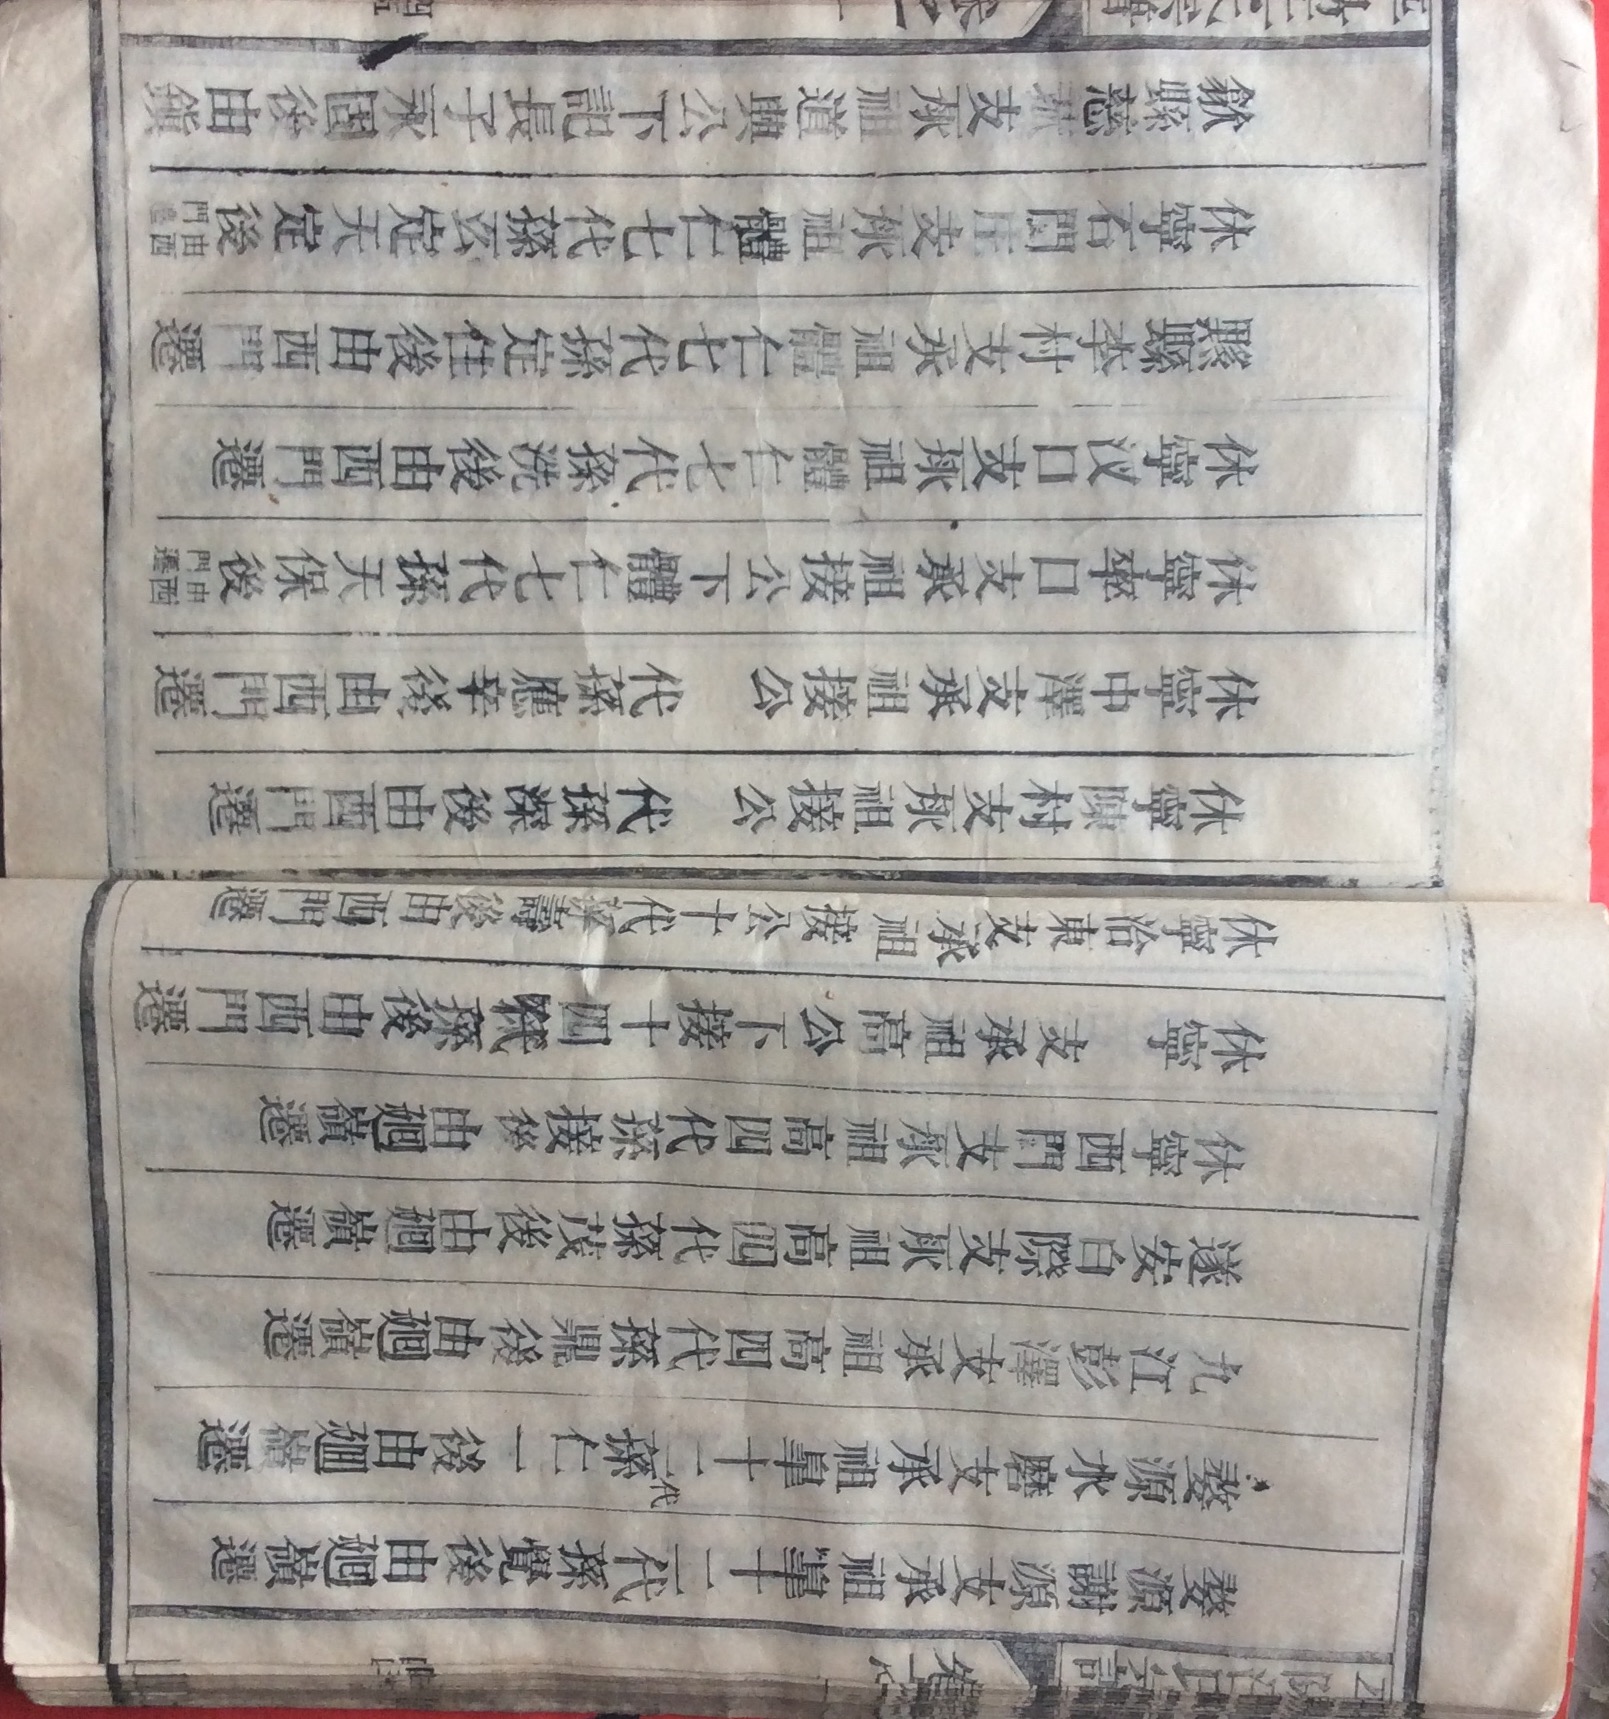 卷一
婺源謝源支承祖羣十二代孫覺後由廻嶺遷
婺源水醫支承祖羣十二代孫仁一後由廻嶺遷
九江彭澤支承祖高四代孫鼎後由廻嶺遷
遂安白際支承祖高四代孫茂後由廻嶺遷
休寧西門支承祖高四代孫接後由廻嶺遷
休寧 支承祖高公下接十四孫後由西門遷
休寧洽東支承祖接公十代孫壽後由西門遷
休寧陳村支承祖接公 代孫後由西門遷
休寧中澤支承祖接公 代孫應辛後由西門遷
休寧率口支承祖接公下體仁七代孫天保後由西門遷
休寧汊口支承祖體仁七代孫洗後由西門遷
黟縣李村支承祖體仁七代孫定住後由西門遷
休寧石門庄支承祖體仁七代孫玄定天定後由西門
歙縣慈菰支承祖道興公下記長子永固後由鎮